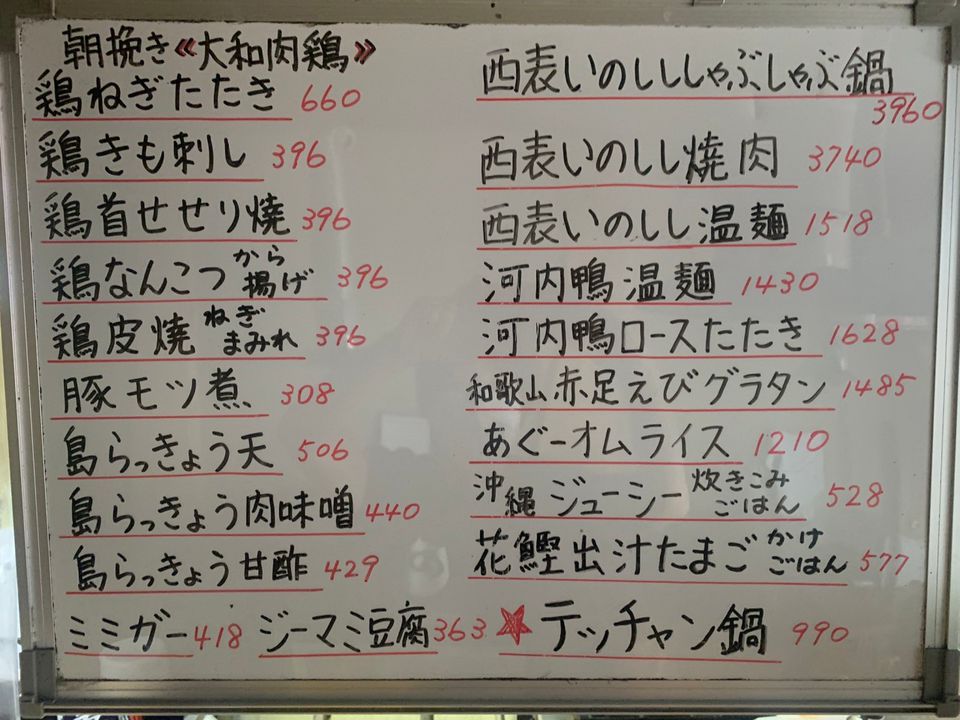 朝挽き《大和肉鶏》
鶏ねぎたたき 660
鶏きも刺し 396
鶏首せせり焼 396
鶏なんこつから揚げ 396
鶏皮焼ねぎまみれ 396
豚モツ煮 308
島らっきょう天 506
島らっきょう肉味噌 440
島らっきょう甘酢 429
ミミガー 418 ジーマミ豆腐 363
西表いのしししゃぶしゃぶ鍋 3960
西表いのしし焼肉 3740
西表いのしし温麺 1518
河内鴨温麺 1430
河内鴨ロースたたき 1628
和歌山赤足えびグラタン 1485
あぐーオムライス 1210
沖縄ジューシー炊きこみごはん 528
花鰹出汁たまごかけごはん 577
★テッチャン鍋 990